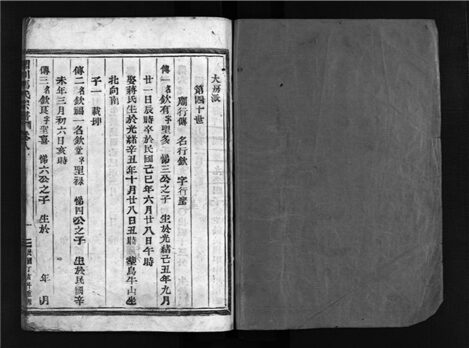 大房派
第四十世
廟行傳 名行欽 字行聖
傳一名欽有字聖多 愓三公之子 生於光緒己丑年九月
廿一日辰時卒於民國己巳年六月廿八日午時
娶蔣氏生於光緒辛丑年十月廿八日丑時 葬烏牛山坐
北向南
子一 載坤
傳二名欽福一名欽堂字聖祿 愓四公之子 生於民國辛
未年三月初六日亥時
傳三名欽良字聖喜 愓六公之子 生於 年 月